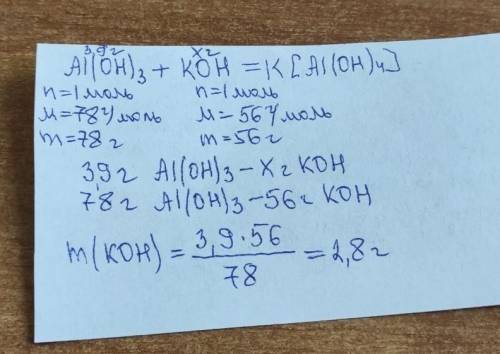 3,9г хг
Al(OH)₃ + KOH = K[Al(OH)₄]
n=1моль n=1моль
M=78г/моль M=56г/моль
m=78г m=56г
3,9г Al(OH)₃ – Xг KOH
78г Al(OH)₃ – 56г KOH
m(KOH) = 3,9·56 / 78 = 2,8г